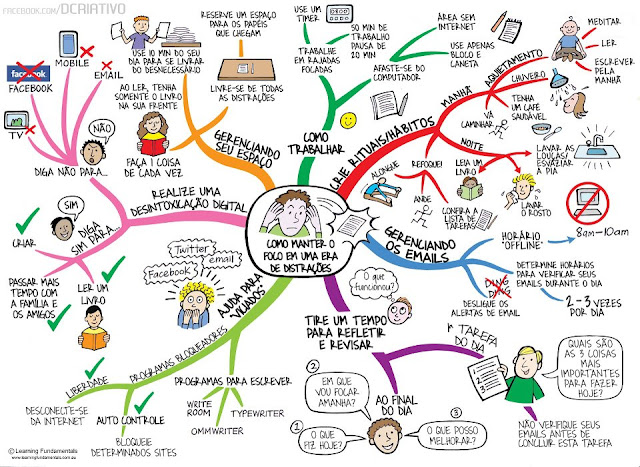 FACEBOOK.COM/DCRIATIVO
MOBILE
EMAIL
facebook
FACEBOOK
TV
NÃO
DIGA NÃO PARA...
REALIZE UMA
DESINTOXICAÇÃO DIGITAL
SIM
DIGA
SIM PARA...
CRIAR
PASSAR MAIS
TEMPO COM
A FAMÍLIA E
OS AMIGOS
LER UM
LIVRO
RESERVE UM ESPAÇO
PARA OS PAPÉIS
QUE CHEGAM
USE 10 MIN DO SEU
DIA PARA SE LIVRAR
DO DESNECESSÁRIO
AO LER, TENHA
SOMENTE O LIVRO
NA SUA FRENTE
LIVRE-SE DE TODAS
AS DISTRAÇÕES
FAÇA 1 COISA
DE CADA VEZ.
GERENCIANDO
SEU ESPAÇO
USE UM
TIMER
50 MIN DE TRABALHO
PAUSA DE
20 MIN
TRABALHE
EM RAJADAS
FOCADAS
ÁREA SEM
INTERNET
USE APENAS
BLOCO E
CANETA
AFASTE-SE DO
COMPUTADOR
COMO
TRABALHAR
CRIE RITUAIS/HÁBITOS
MANHÃ
AQUIETAMENTO
MEDITAR
LER
ESCREVER
PELA
MANHÃ
CHUVEIRO
TENHA
UM CAFÉ
SAUDÁVEL
VÁ
CAMINHAR
NOITE
LAVAR AS
LOUÇAS/
ESVAZIAR
A PIA
LEIA UM
LIVRO
LAVAR
O ROSTO
REFOQUE!
ALONGUE
ANDE
CONFIRA A
LISTA DE
TAREFAS
COMO MANTER O
FOCO EM UMA ERA
DE DISTRAÇÕES
GERENCIANDO
OS EMAILS
HORÁRIO
"OFFLINE"
8am-10am
DETERMINE HORÁRIOS
PARA VERIFICAR SEUS
EMAILS DURANTE O DIA
2-3 VEZES
POR DIA
DING
DING
DESLIGUE OS
ALERTAS DE EMAIL
Twitter
email
Facebook
AJUDA PARA
"VICIADOS"
PROGRAMAS BLOQUEADORES
LIBERDADE
DESCONECTE-SE
DA INTERNET
AUTO CONTROLE
BLOQUEIE
DETERMINADOS SITES
PROGRAMAS PARA ESCREVER
WRITE
ROOM
OMMWRITER
TYPEWRITER
O que
funcionou?
TIRE UM TEMPO
PARA REFLETIR
E REVISAR
1ª TAREFA
DO DIA
QUAIS SÃO
AS 3 COISAS
MAIS
IMPORTANTES
PARA FAZER
HOJE?
1
2
3
NÃO VERIFIQUE SEUS
EMAILS ANTES DE
CONCLUIR ESTA TAREFA
AO FINAL
DO DIA
2
EM QUE
VOU FOCAR
AMANHÃ?
1
O QUE
FIZ HOJE?
3
O QUE POSSO
MELHORAR?
© Learning Fundamentals
www.learningfundamentals.com.au